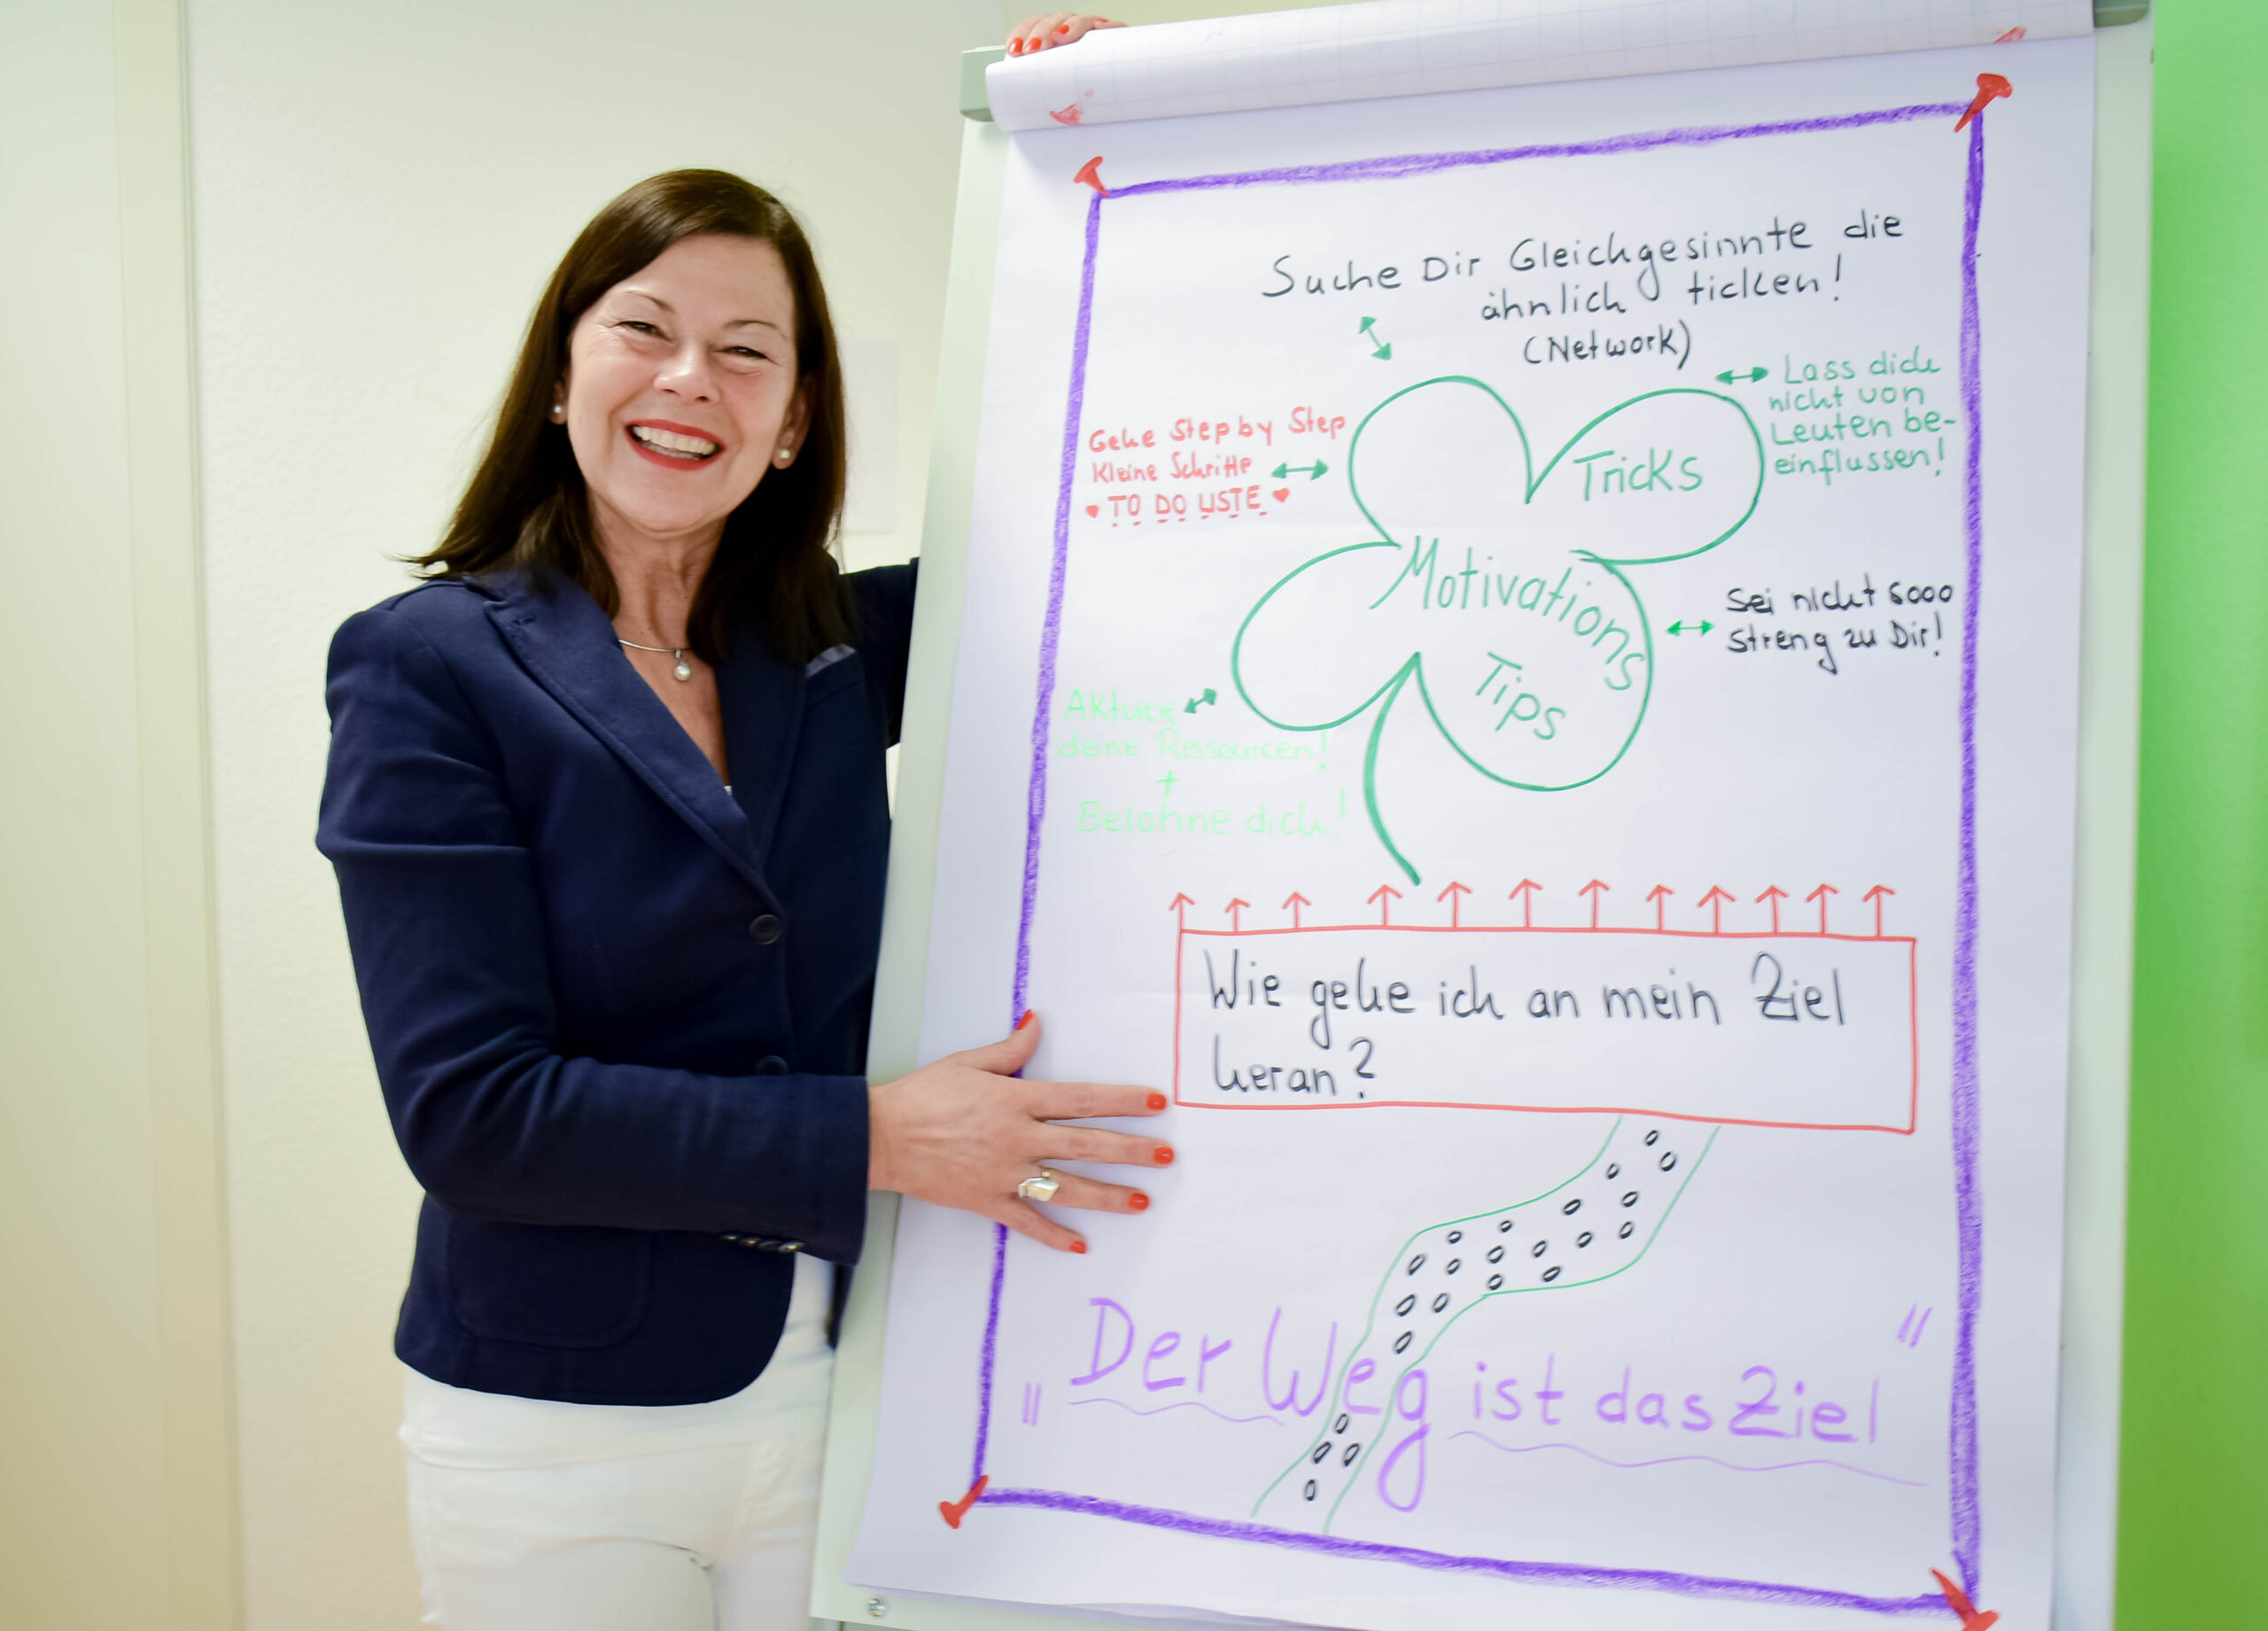 Suche Dir Gleichgesinnte die
ähnlich ticken!
(Network)
Lass dich
nicht von
Leuten be-
einflussen!
Gehe Step by Step
Kleine Schritte
TO DO LISTE
Tricks
Motivations
Tips
Sei nicht sooo
streng zu Dir!
deine Ressourcen!
+
Belohne dich!
Wie gehe ich an mein Ziel
heran?
"Der Weg ist das Ziel"